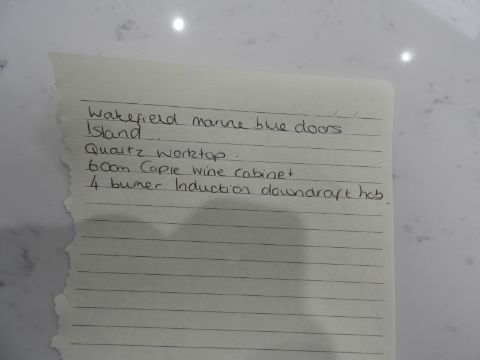 Wakefield marine blue doors
Island.
Quartz worktop.
60cm Caple wine cabinet
4 burner Induction downdraft hob.